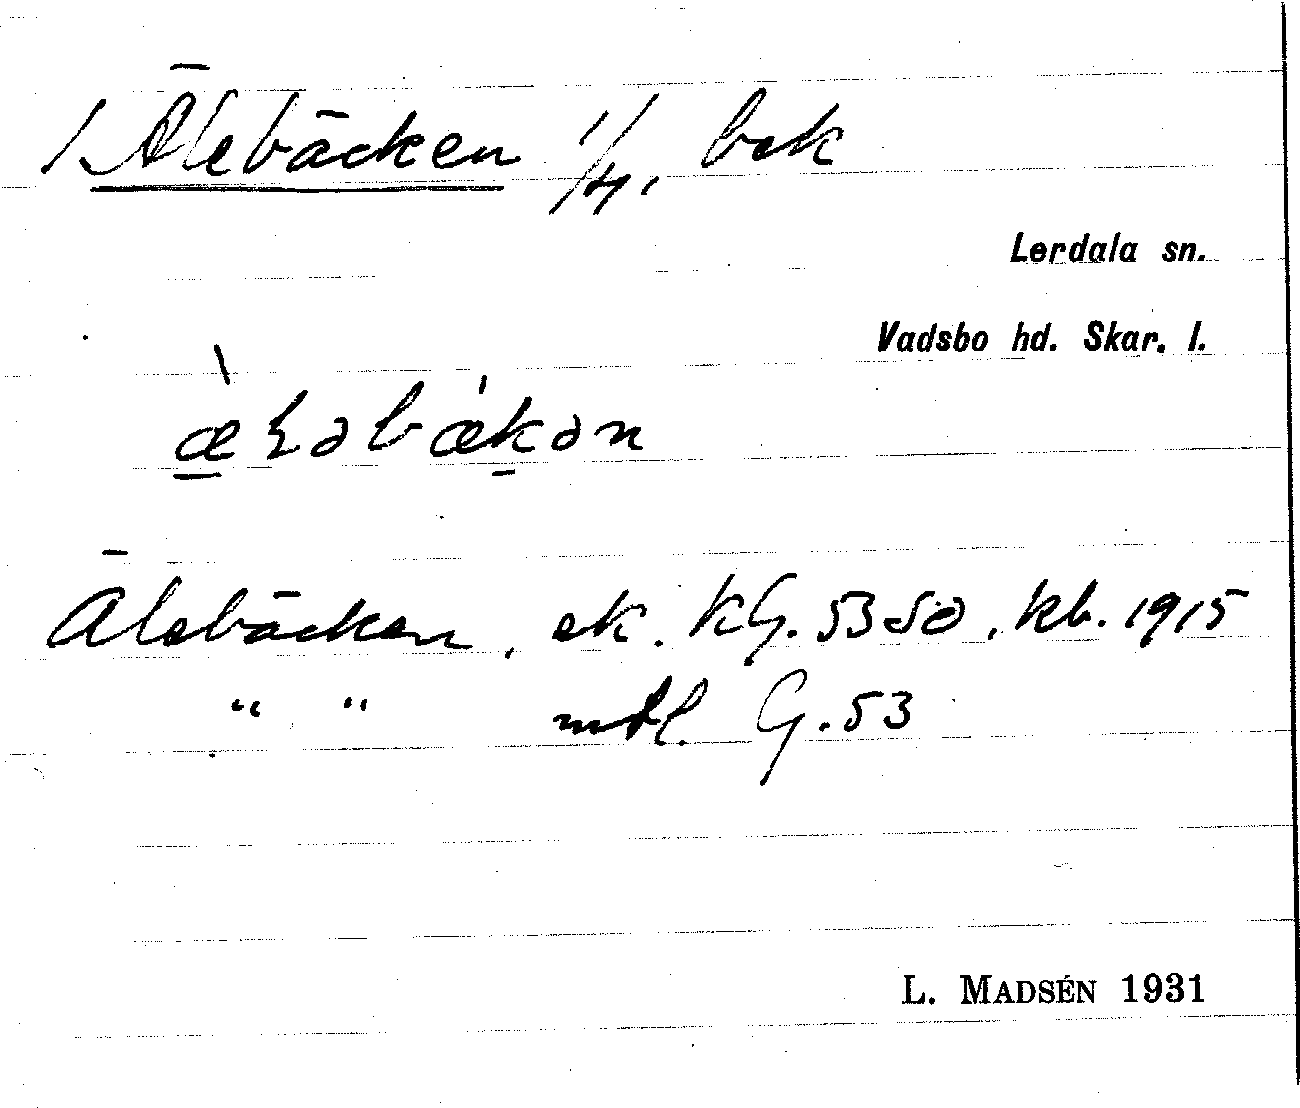 / Älebäcken 1/4, bek
Lerdala sn.
Vadsbo hd. Skar. l.
æ̀ɽəbǽkən
Älebäcken, ek. KG. 5350, kb. 1915
" " mtl. G. 53
L. MADSÉN 1931